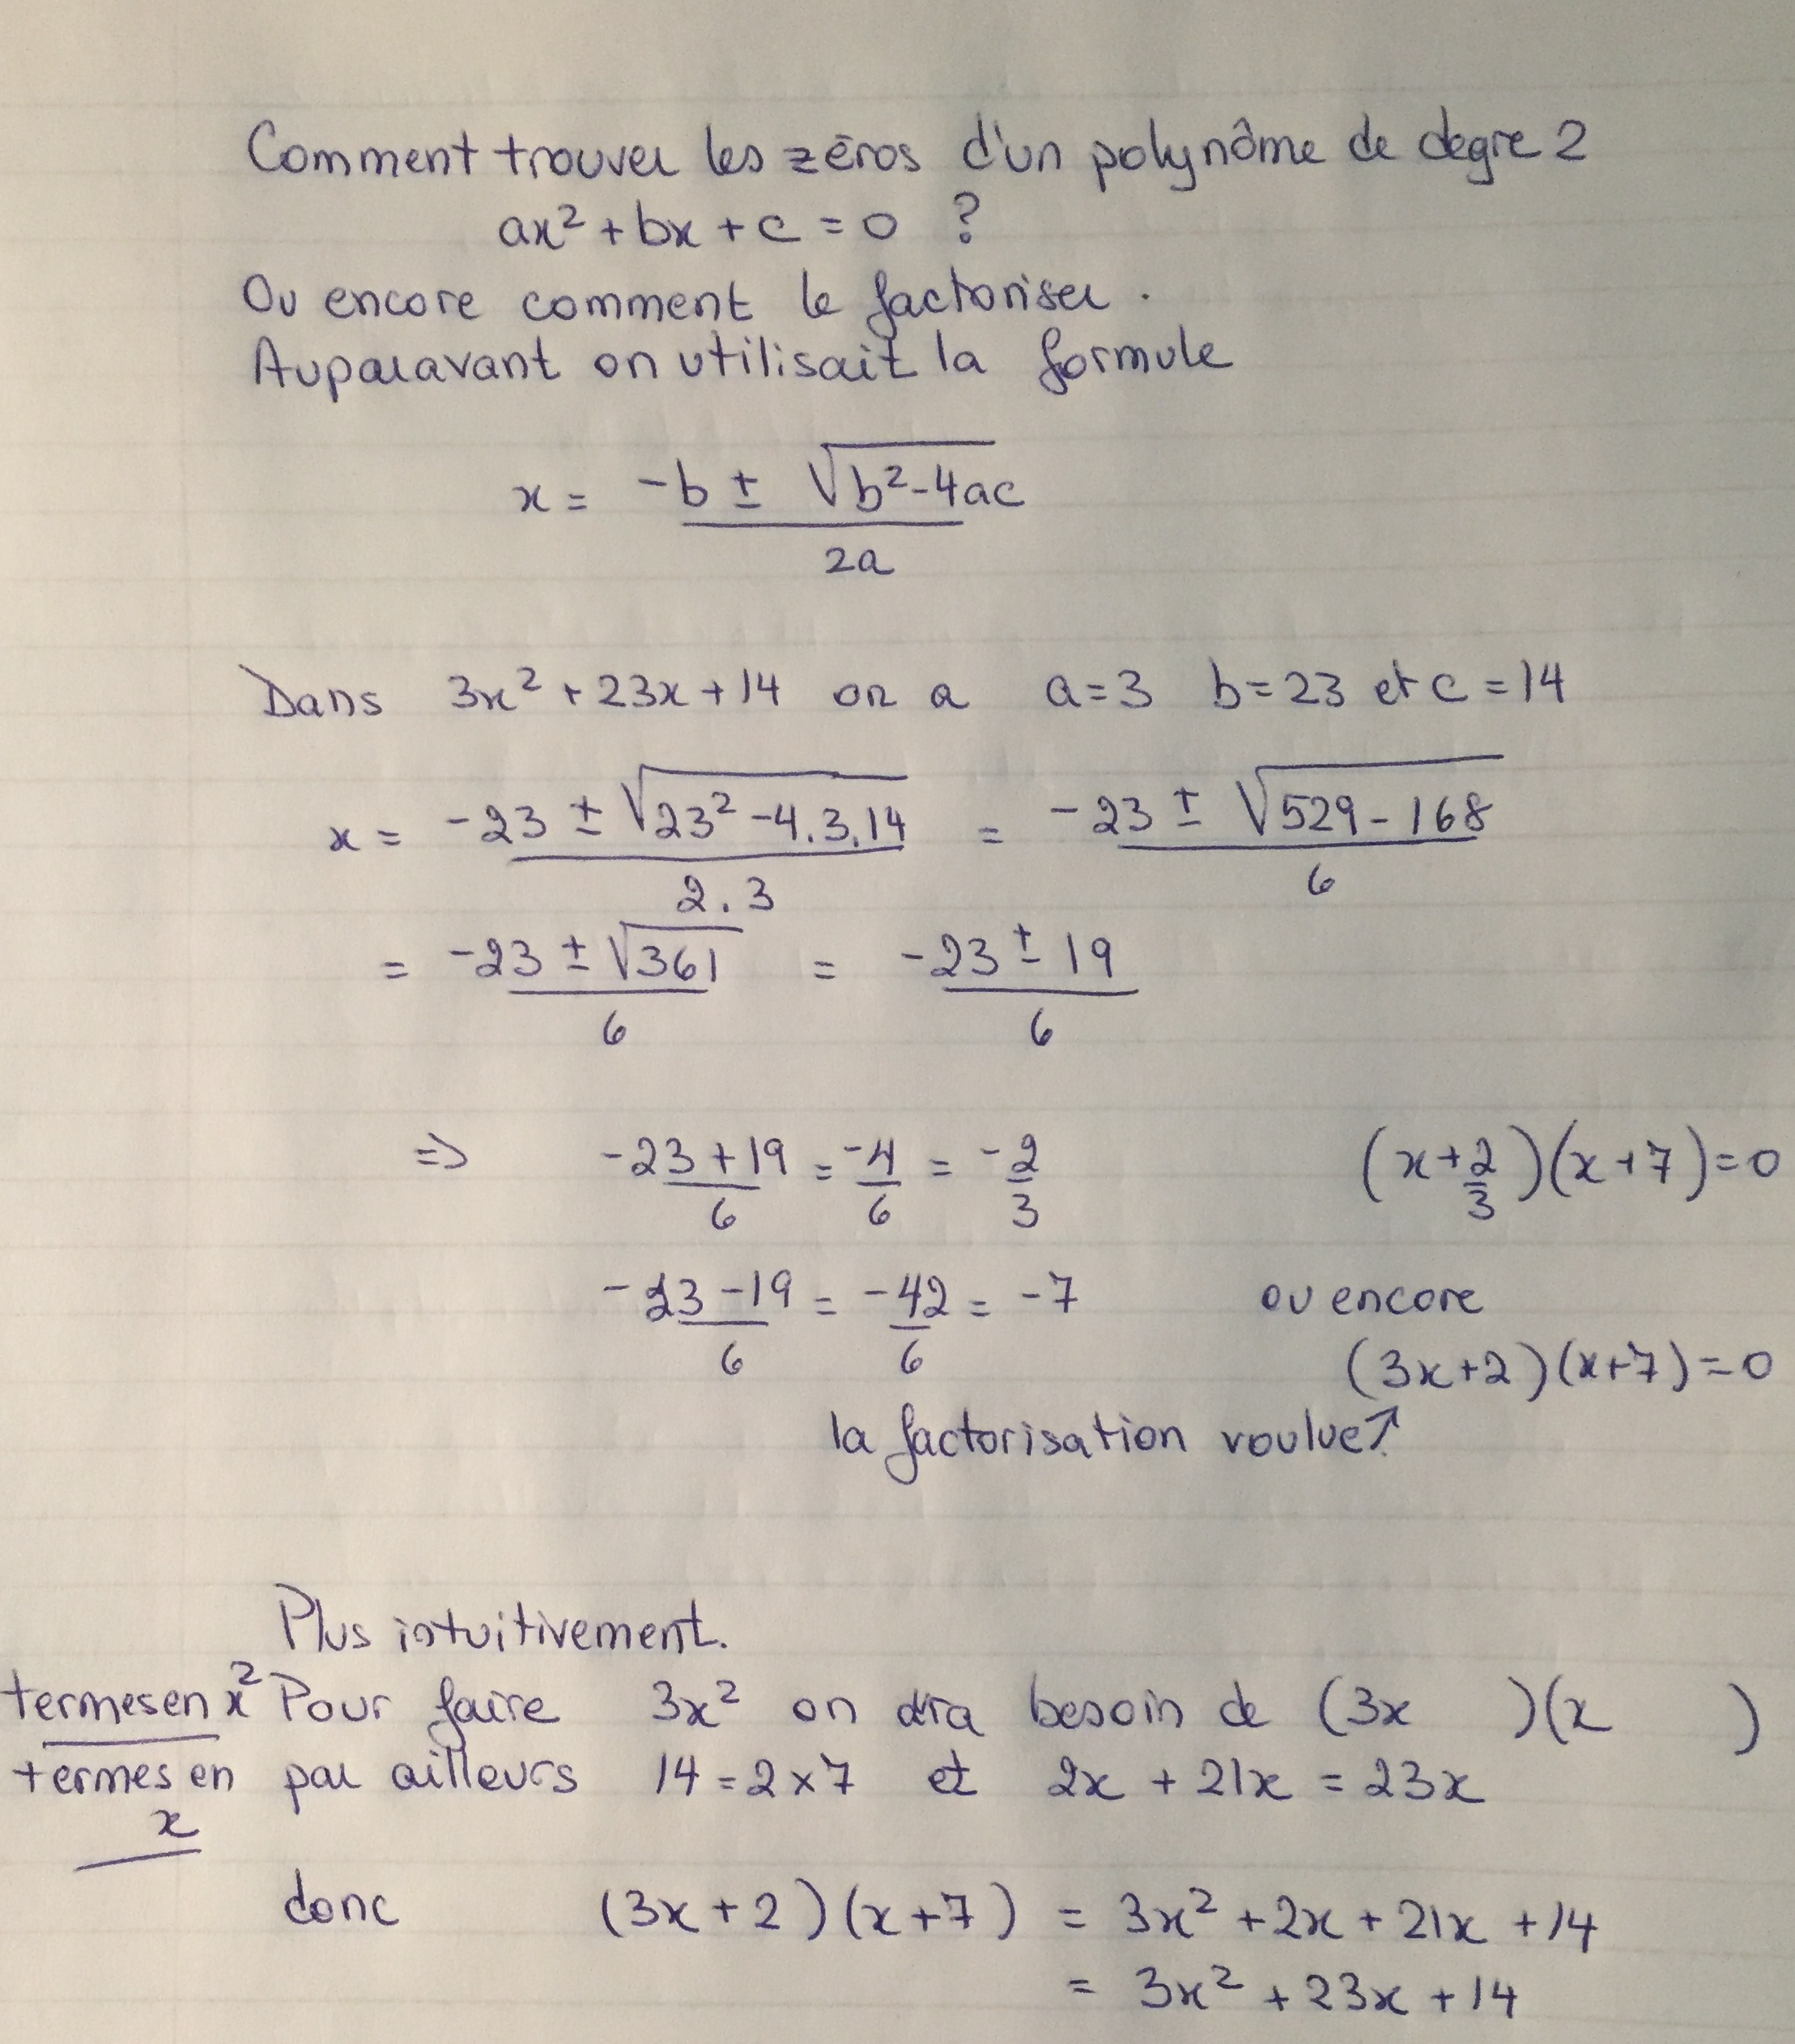 Comment trouver les zéros d'un polynôme de degre 2
ax² + bx + c = 0 ?
Ou encore comment le factoriser.
Auparavant on utilisait la formule
x = (-b ± √(b²-4ac)) / 2a
Dans 3x² + 23x + 14 on a a=3 b=23 et c=14
x = (-23 ± √(23²-4.3.14)) / 2.3 = (-23 ± √(529-168)) / 6
= (-23 ± √361) / 6 = (-23 ± 19) / 6
=> (-23+19)/6 = -4/6 = -2/3 (x+2/3)(x+7)=0
(-23-19)/6 = -42/6 = -7 ou encore
(3x+2)(x+7)=0
la factorisation voulue↗
Plus intuitivement.
termes en x² Pour faire 3x² on besoin de (3x )(x )
termes en x par ailleurs 14=2×7 et 2x + 21x = 23x
donc (3x+2)(x+7) = 3x² + 2x + 21x + 14
= 3x² + 23x + 14